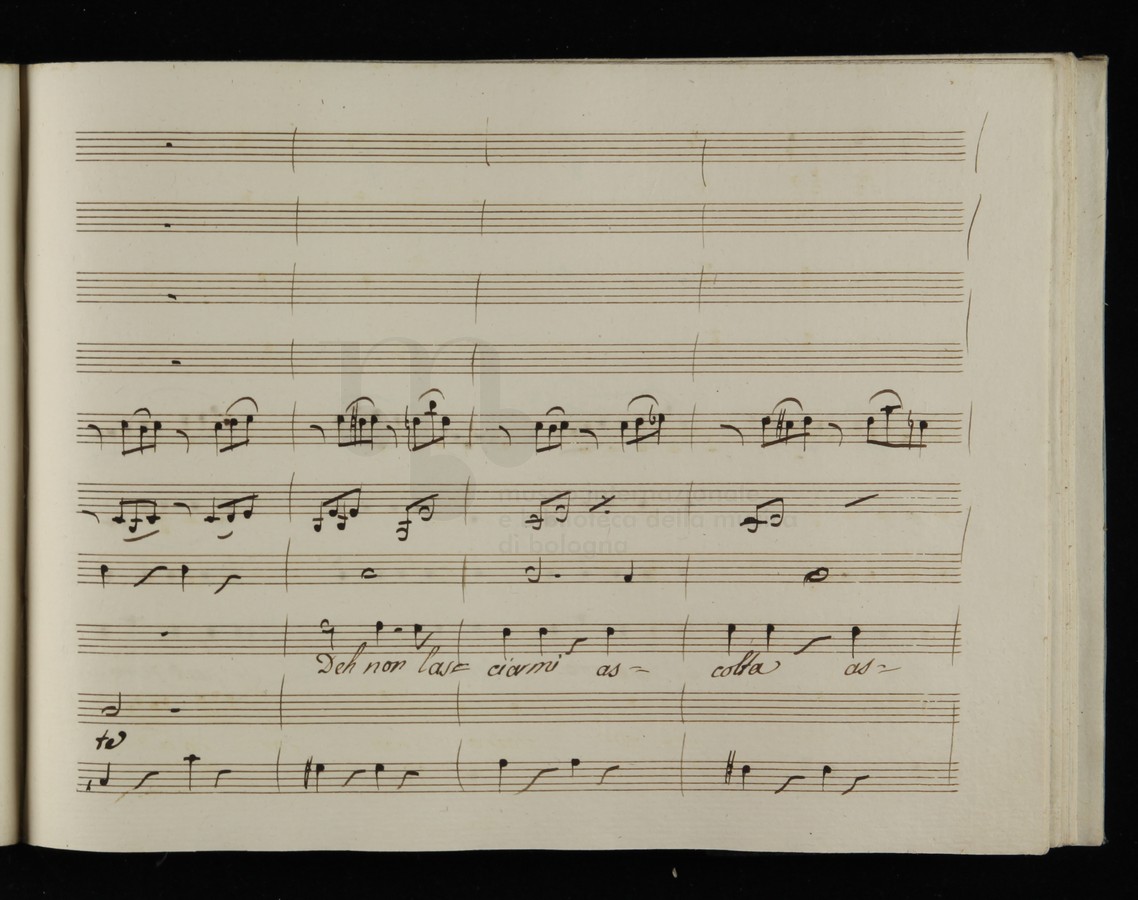 museo internazionale
e biblioteca della musica
di bologna
Deh non las= ciarmi as= colta as=
te